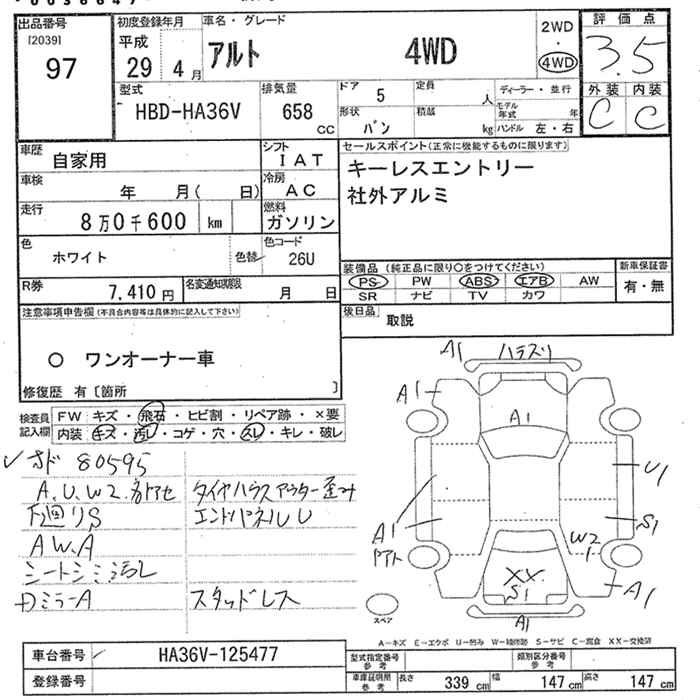 出品番号
[2039]
97
初度登録年月
平成
29 4月
車名・グレード
アルト 4WD
2WD
・
4WD
評価点
3.5
外装 内装
C C
型式
HBD-HA36V
排気量
658 cc
ドア 5
形状 バン
定員 人
積載 kg
ディーラー・並行
モデル年式 年
ハンドル 左・右
車歴 自家用
シフト IAT
車検 年 月( 日)
冷房 AC
走行 8万0千600 km
燃料 ガソリン
色 ホワイト 色替
色コード 26U
R券 7,410円
名変通知期限 月 日
セールスポイント(正常に機能するものに限ります)
キーレスエントリー
社外アルミ
装備品(純正品に限り○をつけてください)
PS PW ABS エアB AW
SR ナビ TV カワ
新車保証書
有・無
後日品 取説
注意事項申告欄(不具合内容等は具体的に記入して下さい)
○ ワンオーナー車
修復歴 有〔箇所 〕
検査員記入欄
FW キズ・飛石・ヒビ割・リペア跡・×要
内装 キズ・汚レ・コゲ・穴・スレ・キレ・破レ
オド 80595
A、U、W2、各ドアセ
下廻りS
AW、A
シートシミ汚レ
タイヤハウスアウター歪み
エンドパネルU
スタッドレス
A1 ハラスリ
A1
A1
A1
U1
S1
W2
A1
XX
S1
A1
スペア
A1
A－キズ E－エクボ U－凹み W－補修跡 S－サビ C－腐食 XX－交換済
車台番号 HA36V-125477
登録番号
型式指定番号 参考
類別区分番号 参考
車庫証明 参考
長さ 339 cm 幅 147 cm 高さ 147 cm